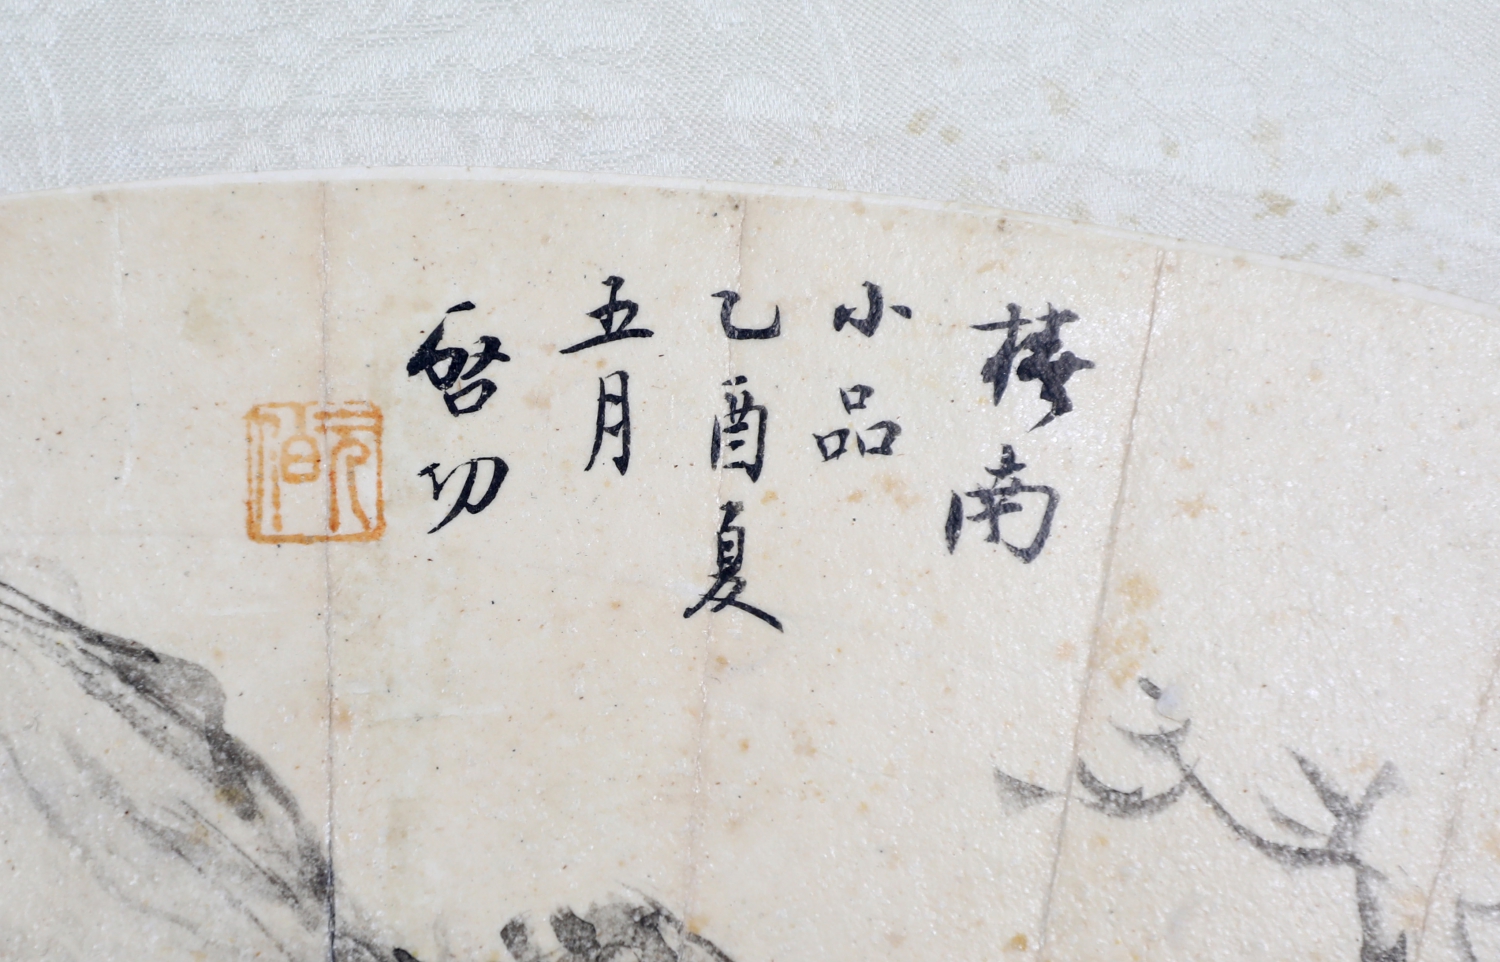 椿南
小品
乙酉夏
五月
啓功
元伯